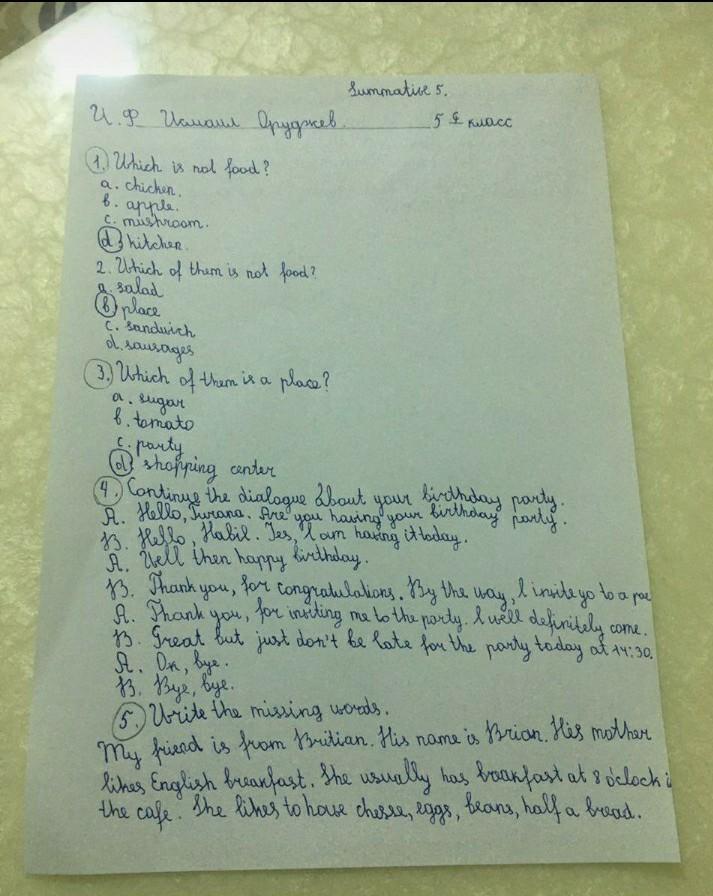 Summative 5.
И.Ф Исмаил Оруджев. 5 класс
1. Which is not food?
a. chicken.
b. apple.
c. mushroom.
d. kitchen.
2. Which of them is not food?
a. salad
b. place
c. sandwich
d. sausages
3. Which of them is a place?
a. sugar
b. tomato
c. party
d. shopping center
4. Continue the dialogue about your birthday party.
A. Hello, Turana. Are you having your birthday party.
B. Hello, Habil. Yes, I am having it today.
A. Well then happy birthday.
B. Thank you, for congratulations. By the way, I invite yo to a par
A. Thank you, for inviting me to the party. I well definitely come.
B. Great but just don't be late for the party today at 14:30.
A. Ok, bye.
B. Bye, bye.
5. Write the missing words.
My friend is from Britian. His name is Brian. His mother
likes English breanfast. She usually has breakfast at 8 o'clock i
the cafe. She likes to have chesse, eggs, beans, half a bread.